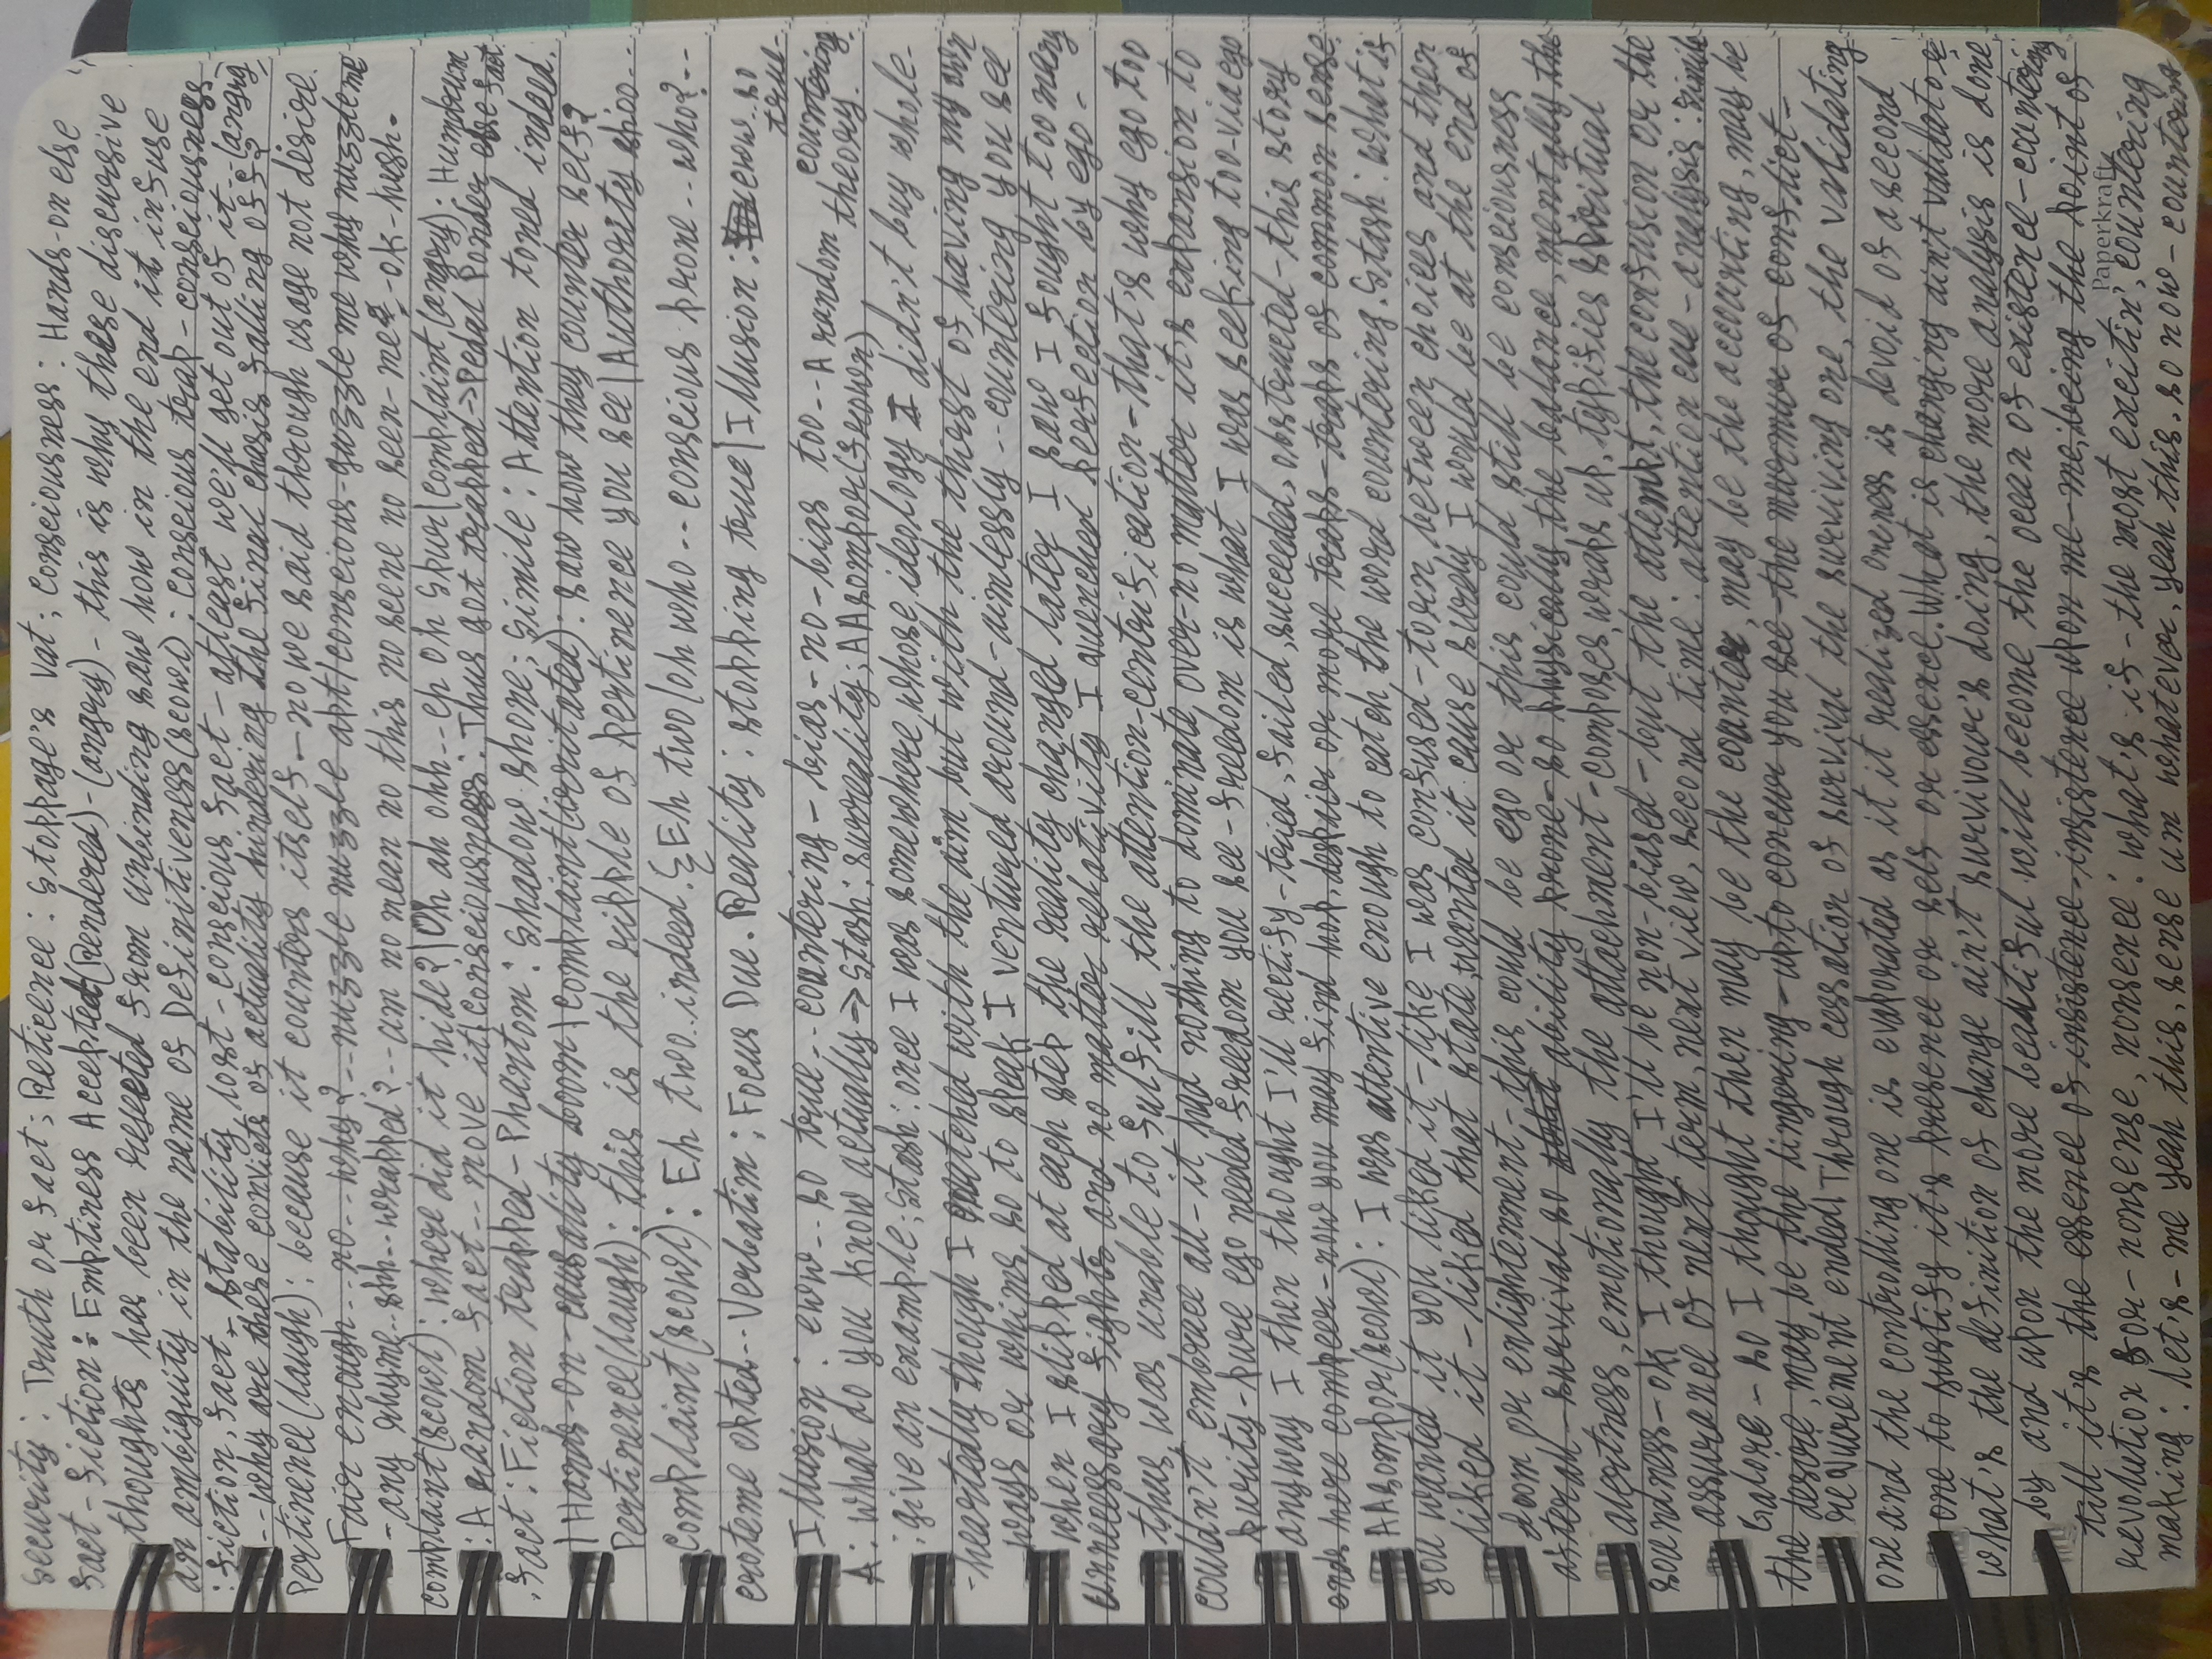 Security : Truth or fact ; Reticence : Stoppage's vat ; Consciousness : Hands-on else
fact - fiction : Emptiness Accepted (Rendered) - (angry) - this is why these discursive
thoughts has been rejected from unbinding saw how in the end it infuse
an ambiguity in the name of Definitiveness (scowl) : conscious trap - consciousness
: fiction, fact, stability lost - conscious fact - atleast we'll get out of it -- (angry)
-- why are these convicts of actuality hindering the final chasis falling off?
Pertinence (laugh) : because it counters itself - no we said through usage not desire.
Fair enough -- no -- why? -- nuzzle nuzzle apt | conscious - guzzle me why nuzzle me
- any rhyme -- shh -- wrapped? -- am no mean no this no scene no seen - me? - ok - hush -
complaint (scowl) : where did it hide? | Oh ah ohh -- eh oh spur | complaint (angry) : Humdrum
: A random fact -- move it | consciousness : Thus got trapped -> Pedal Ponder else fact
. fact : Fiction trapped - Phantom : Shadow shone ; Simile : Attention toned indeed.
| Hands-On - causality boom | complaint (irritated) : saw how they counter self?
Pertinence (laugh) : this is the ripple of pertinence you see | Authority shoo --
Complaint (scowl) : Eh two.. indeed. { Eh two / oh who -- conscious prone -- who? --
eroteme opted -- Verbatim ; Focus Due . Reality : stopping true | Illusion : eww.. so
true -
Illusion : eww.. so true -- countering - bias - no - bias too -- A random countering
theory.
A : what do you know actually => Stash : surreality ; AAsompor (frown)
: give an example ; Stash : once I was somewhere whose ideology I didn't buy whole-
-heartedly though I matched with the aim but with the thirst of having my own
ways or whims so to speak I ventured around - aimlessly -- countering you see
when I slipped at each step the reality changed later I saw I fought too many
unnecessary fights and no matter relativity I quenched perfection by ego -
thus was unable to fulfill the attention-centrification - that's why ego too
couldn't embrace all - it had nothing to dominate over - no matter it's expansion to
purity - pure ego needed freedom you see - freedom is what I was seeking too - via ego
anyway I then thought I'll rectify - tried, failed, succeeded, obstructed - this story
ends here compeer - now you may find hop, despair or more traps - traps of common sense.
AAsompor (scowl) : I was attentive enough to catch the word countering. Stash : what if
you wanted it you liked it - like I was confused - torn between choices and then
liked it - liked that state, wanted it cause surely I would be at the end of
doom or enlightenment - this could be ego or this could still be consciousness
afterall - survival so ability prone - so physically the balance, mentally the
alertness, emotionally the attachment - composes, wraps up, typifies spiritual
soundness - ok I thought I'll be non-biased - but the attempt, the confusion or the
assurance of next term, next view, second time : attention cue - analysis : simile
Galore - so I thought then may be the counter, may be the accounting, may be
the desire, may be the lingering - upto concur you see - the murmur of conflict -
requirement ended | Through cessation of survival the surviving one, the validating
one and the controlling one is evaporated as it it realized oneness is devoid of a second
one to justify it's presence or self or essence. What is changing ain't validator,
what's the definition of change ain't survivour's doing, the more analysis is done
by and upon the more beautiful will become the ocean of existence - countering
till it's the essence of insistence - insistence upon me - me ; being the point of
revolution for - nonsense, nonsence : what's if - the most excitin', countering
making : let's - me yeah this, sense um whatever, yeah this, so now - countering
Paperkraft